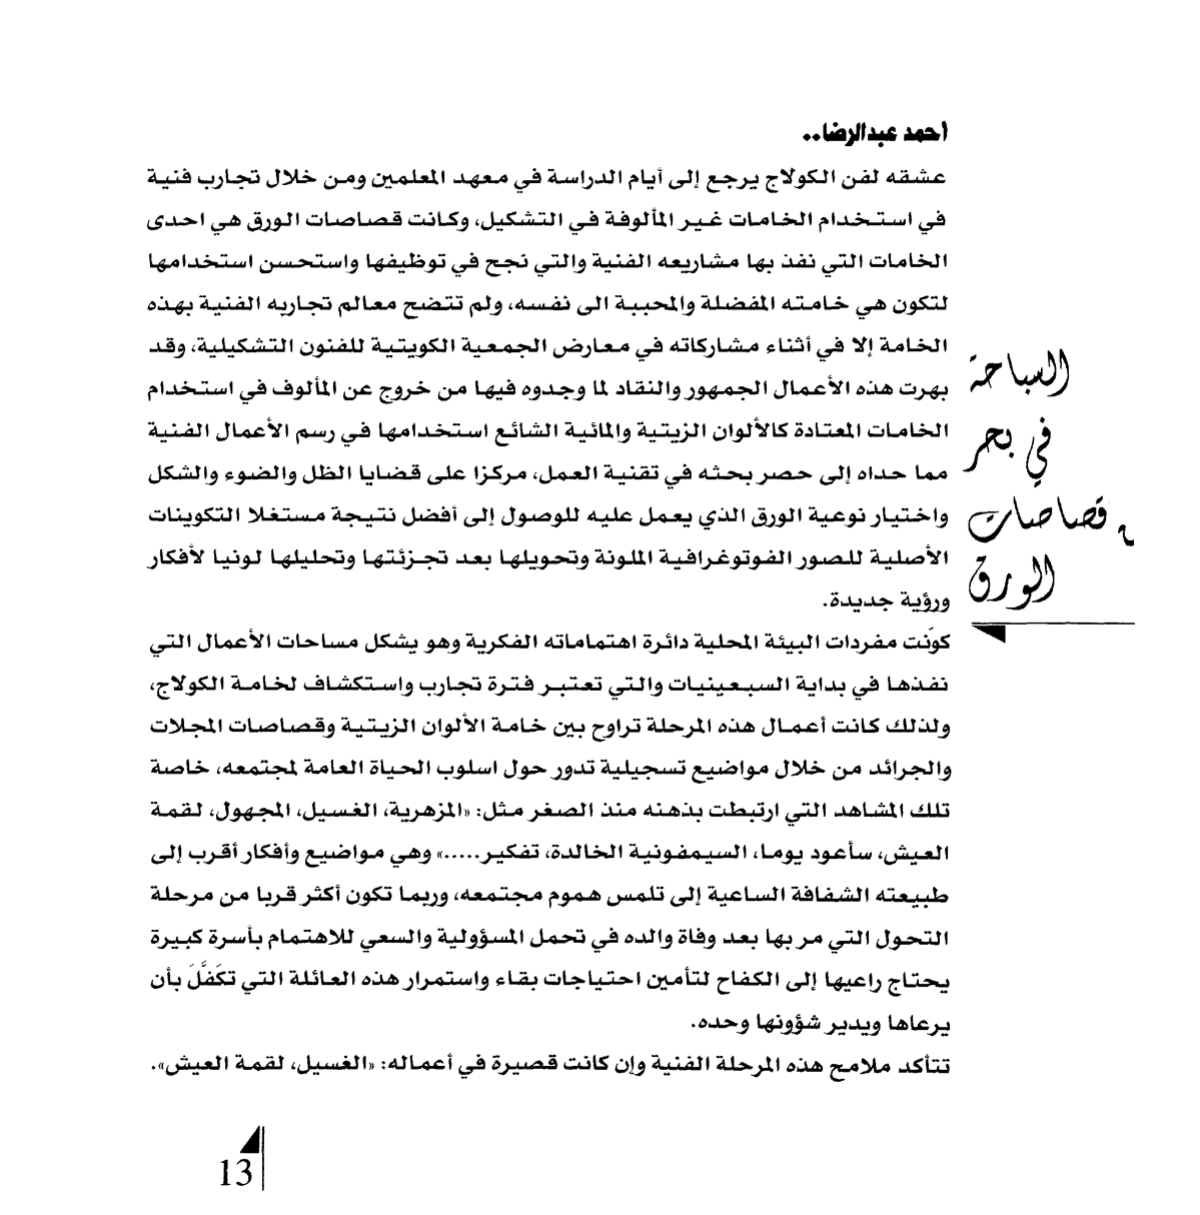 احمد عبدالرضا..
عشقه لفن الكولاج يرجع إلى أيام الدراسة في معهد المعلمين ومن خلال تجارب فنية
في استخدام الخامات غير المألوفة في التشكيل، وكانت قصاصات الورق هي احدى
الخامات التي نفذ بها مشاريعه الفنية والتي نجح في توظيفها واستحسن استخدامها
لتكون هي خامته المفضلة والمحببة الى نفسه، ولم تتضح معالم تجاربه الفنية بهذه
الخامة إلا في أثناء مشاركاته في معارض الجمعية الكويتية للفنون التشكيلية، وقد
بهرت هذه الأعمال الجمهور والنقاد لما وجدوه فيها من خروج عن المألوف في استخدام
الخامات المعتادة كالألوان الزيتية والمائية الشائع استخدامها في رسم الأعمال الفنية
مما حداه إلى حصر بحثه في تقنية العمل، مركزا على قضايا الظل والضوء والشكل
واختيار نوعية الورق الذي يعمل عليه للوصول إلى أفضل نتيجة مستغلا التكوينات
الأصلية للصور الفوتوغرافية الملونة وتحويلها بعد تجزئتها وتحليلها لونيا لأفكار
ورؤية جديدة.
كوَنت مفردات البيئة المحلية دائرة اهتماماته الفكرية وهو يشكل مساحات الأعمال التي
نفذها في بداية السبعينيات والتي تعتبر فترة تجارب واستكشاف لخامة الكولاج،
ولذلك كانت أعمال هذه المرحلة تراوح بين خامة الألوان الزيتية وقصاصات المجلات
والجرائد من خلال مواضيع تسجيلية تدور حول اسلوب الحياة العامة لمجتمعه، خاصة
تلك المشاهد التي ارتبطت بذهنه منذ الصغر مثل: «المزهرية، الغسيل، المجهول، لقمة
العيش، سأعود يوما، السيمفونية الخالدة، تفكير.....» وهي مواضيع وأفكار أقرب إلى
طبيعته الشفافة الساعية إلى تلمس هموم مجتمعه، وربما تكون أكثر قربا من مرحلة
التحول التي مر بها بعد وفاة والده في تحمل المسؤولية والسعي للاهتمام بأسرة كبيرة
يحتاج راعيها إلى الكفاح لتأمين احتياجات بقاء واستمرار هذه العائلة التي تكَفَّلَ بأن
يرعاها ويدير شؤونها وحده.
تتأكد ملامح هذه المرحلة الفنية وإن كانت قصيرة في أعماله: «الغسيل، لقمة العيش».
السباحة
في بحر
قصاصات
الورق
13